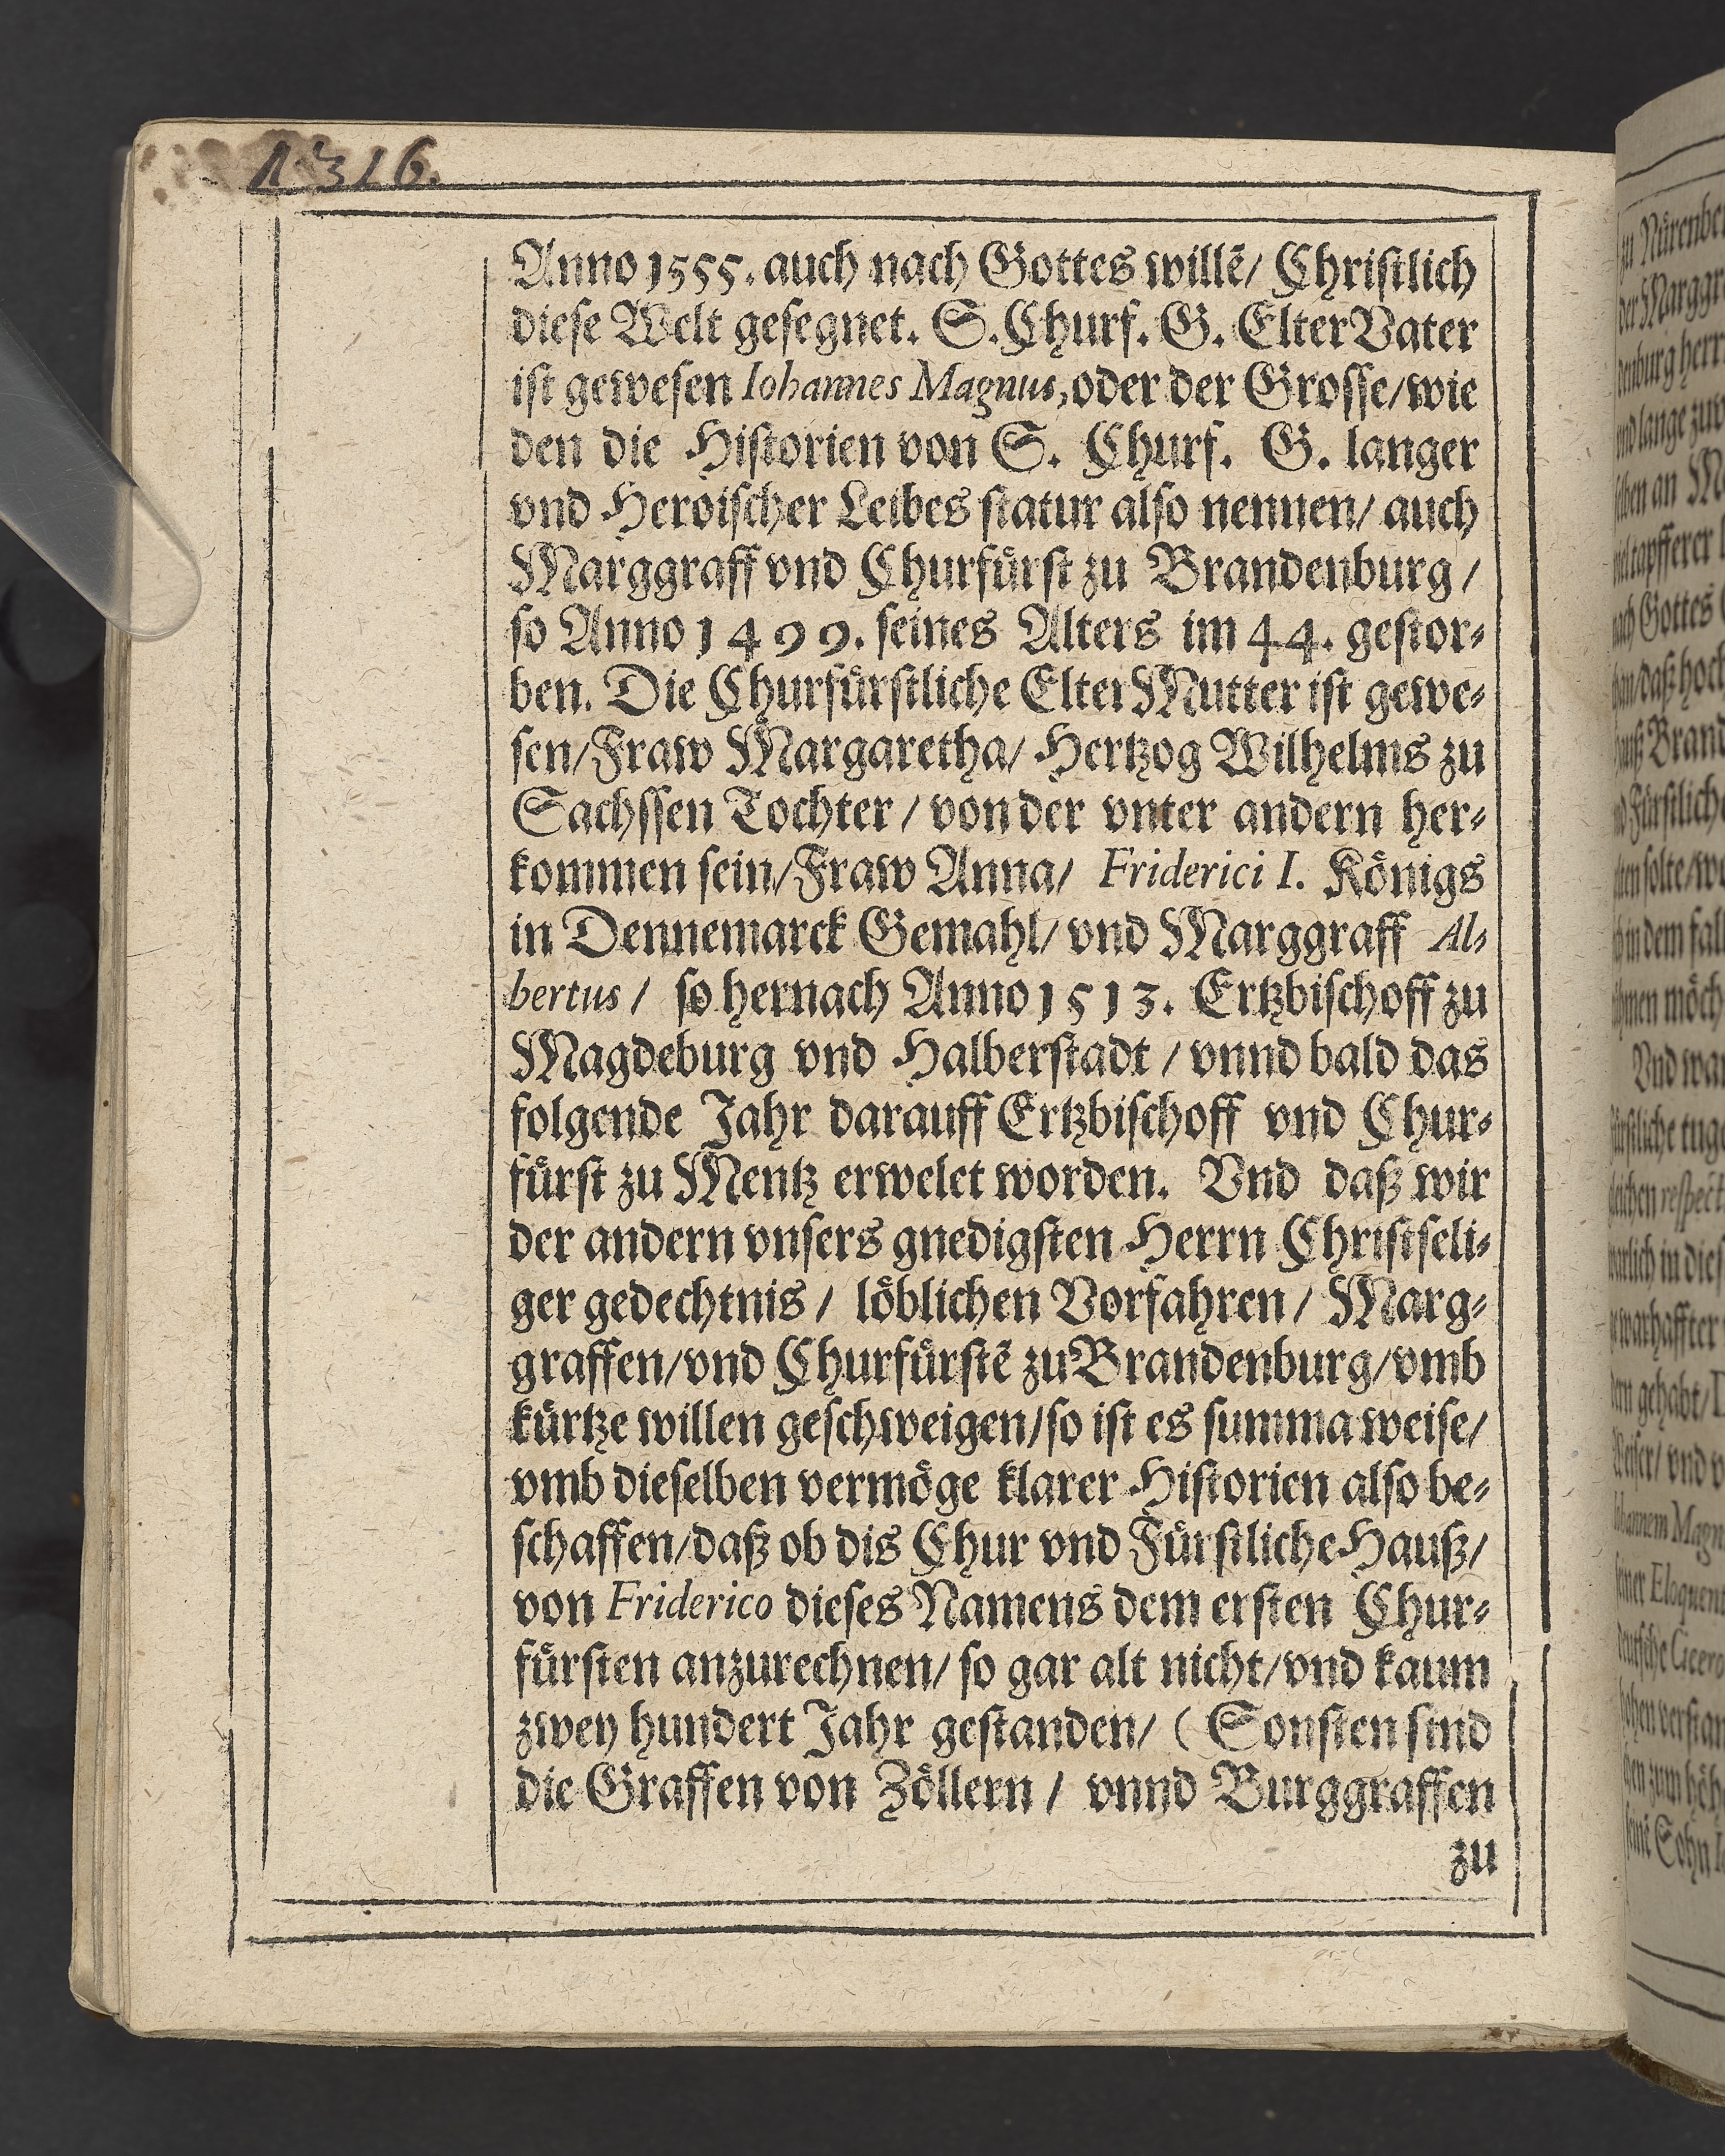 1316.
Anno 1555. auch nach Gottes willē/ Chriſtlich
dieſe Welt geſegnet. S. Churf. G. ElterVater
iſt geweſen Iohannes Magnus, oder der Groſſe/wie
den die Hiſtorien von S. Churf. G. langer
vnd Heroiſcher Leibes ſtatur alſo nennen/ auch
Marggraff vnd Churfuͤrſt zu Brandenburg/
ſo Anno 1499. ſeines Alters im 44. geſtor⸗
ben. Die Churfuͤrſtliche ElterMutter iſt gewe⸗
ſen/Fraw Margaretha/ Hertzog Wilhelms zu
Sachſſen Tochter/ von der vnter andern her⸗
kommen ſein/Fraw Anna/ Friderici I. Koͤnigs
in Dennemarck Gemahl/ vnd Marggraff Al⸗
bertus/ ſo hernach Anno 1513. Ertzbiſchoff zu
Magdeburg vnd Halberſtadt/ vnnd bald das
folgende Jahr darauff Ertzbiſchoff vnd Chur⸗
fuͤrſt zu Mentz erwelet worden. Vnd daß wir
der andern vnſers gnedigſten Herrn Chriſtſeli⸗
ger gedechtnis/ loͤblichen Vorfahren/ Marg⸗
graffen/vnd Churfuͤrſtē zu Brandenburg/vmb
kuͤrtze willen geſchweigen/ſo iſt es ſumma weiſe/
vmb dieſelben vermoͤge klarer Hiſtorien alſo be⸗
ſchaffen/daß ob dis Chur vnd Fuͤrſtliche Hauß/
von Friderico dieſes Namens dem erſten Chur⸗
fuͤrſten anzurechnen/ ſo gar alt nicht/vnd kaum
zwey hundert Jahr geſtanden/ (Sonſten ſind
die Graffen von Zoͤllern/ vnnd Burggraffen
zu